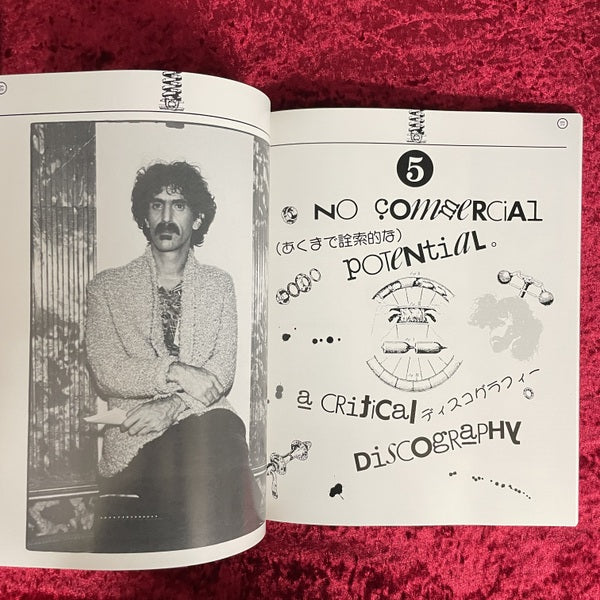 5
NO COMMERCIAL
(あくまで詮索的な)
POTENTIAL。
a CRITICAL ディスコグラフィー
DISCOGRAPHY